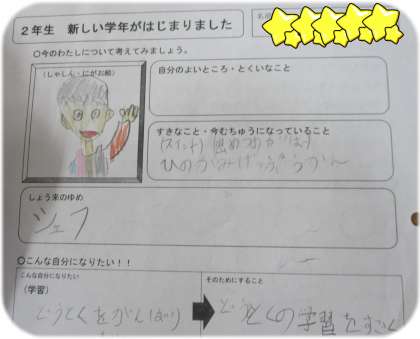 2年生　新しい学年がはじまりました
○今のわたしについて考えてみましょう。
(しゃしん・にがお絵)
自分のよいところ・とくいなこと
すきなこと・今むちゅうになっていること
しょう来のゆめ
シェフ
○こんな自分になりたい！！
こんな自分になりたい
(学習)
どうとくをがんばり
そのためにすること
どうとくの学習をすごく